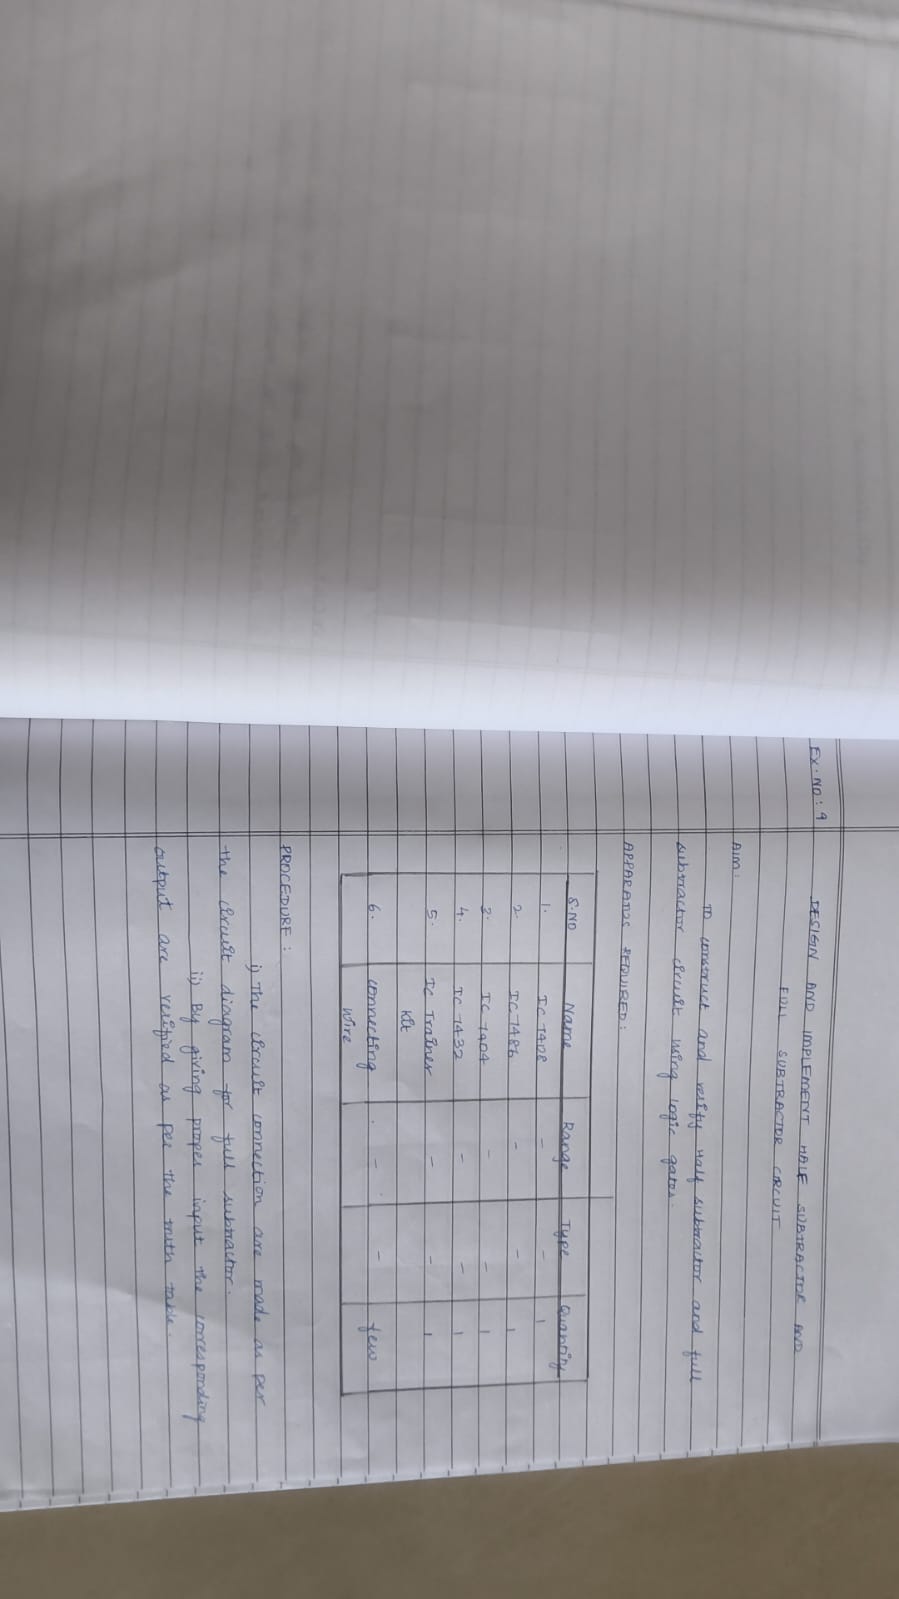 EX.NO: 9
DESIGN AND IMPLEMENT HALF SUBTRACTOR AND
FULL SUBTRACTOR CIRCUIT
AIM:
TO construct and verify Half subtractor and full
subtractor circuit using logic gates.
APPARATUS REQUIRED:
S.NO Name Range Type Quantity
1. IC 7408 - - 1
2. IC 7486 - - 1
3. IC 7404 - - 1
4. IC 7432 - - 1
5. IC Trainer - - 1
kit
6. connecting - - few
wire
PROCEDURE:
i) The circuit connection are made as per
the circuit diagram for full subtractor.
ii) By giving proper input the corresponding
output are verified as per the truth table.